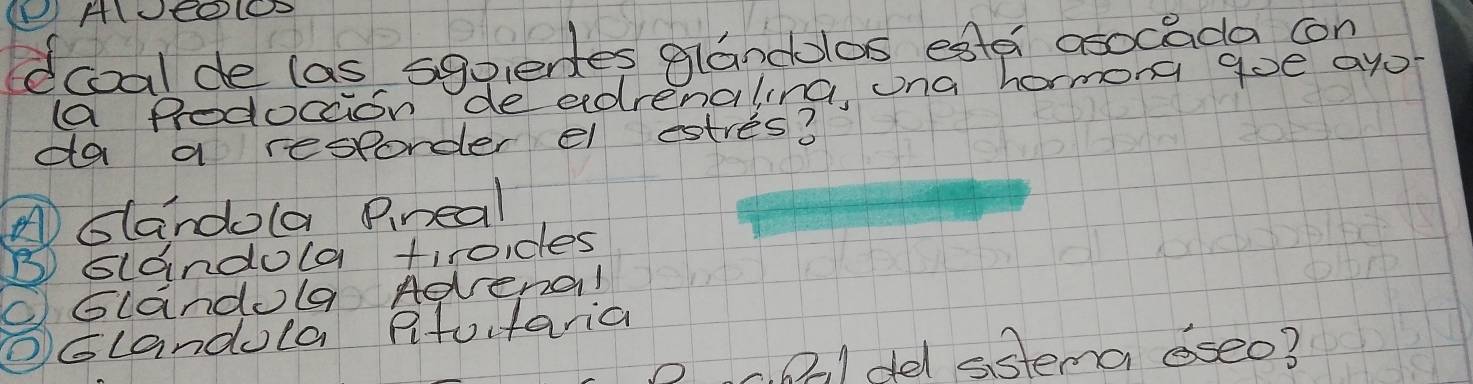 D Alveolos
¿Cual de las sguientes glándulas está asociada con
la Producción de adrenalina, una hormona que ayu-
da a responder el estrés?
A Glándula Pineal
B Glándula tiroides
C Glándula Adrenal
D Glandula Pituitaria
del sistema óseo?